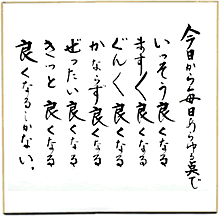 今日から毎日あらゆる点で
いっそう良くなる
ますます良くなる
ぐんぐん良くなる
かならず良くなる
ぜったい良くなる
きっと良くなる
良くなるしかない。